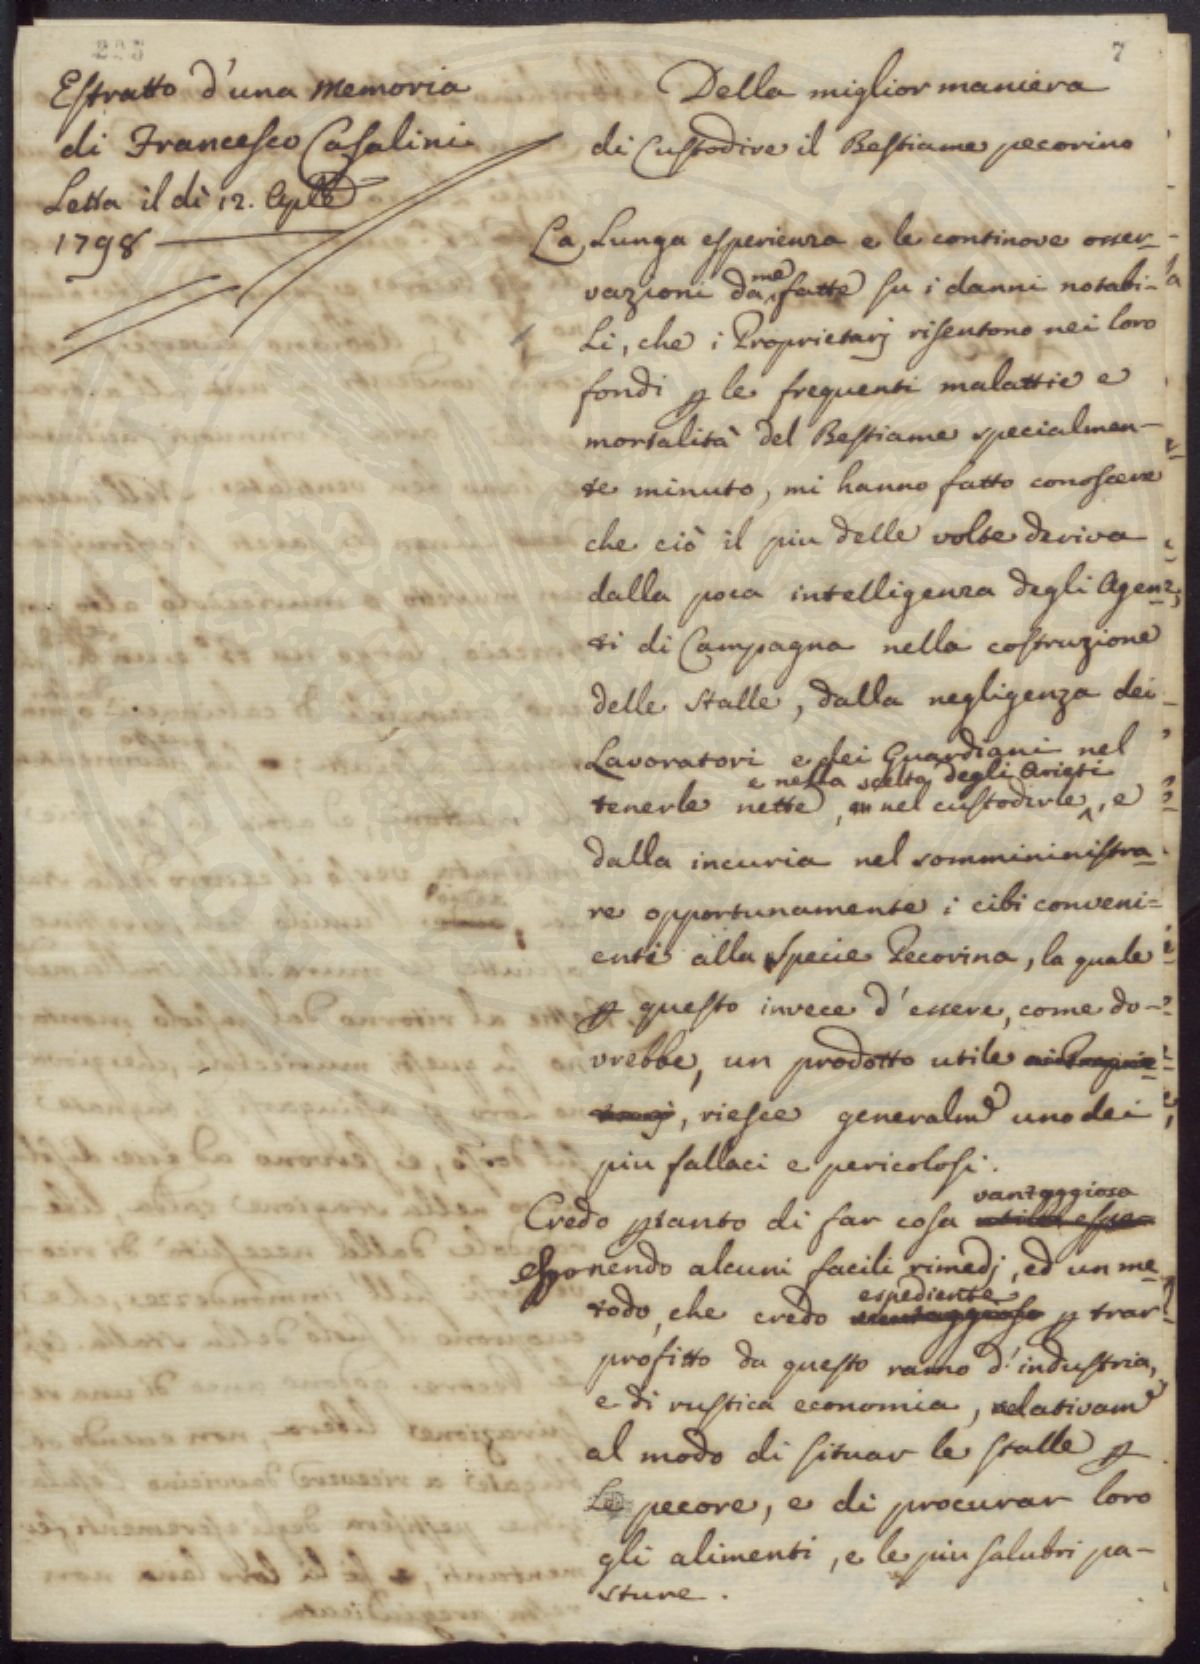 7
Estratto d'una Memoria
di Francesco Casalini
Letta il dì 12. Aple
1798
Della miglior maniera
di Custodire il Bestiame pecorino
La Lunga esperienza e le continove osser-
vazioni da me fatte su i danni notabi-
li, che i Proprietarj risentono nei loro
fondi p le frequenti malattie e
mortalità del Bestiame specialmen-
te minuto, mi hanno fatto conoscere
che ciò il piu delle volte deriva
dalla poca intelligenza degli Agen-
ti di Campagna nella costruzione
delle Stalle, dalla negligenza dei
Lavoratori e dei Guardiani nel
e nella scelta degli Arieti
tenerle nette, nel custodirle, e
dalla incuria nel sommininistra-
re opportunamente i cibi conveni=
enti alla Specie Pecorina, la quale
p questo invece d'essere, come do-
vrebbe, un prodotto utile ai Proprie-
tarj, riesce generalme uno dei
piu fallaci e pericolosi.
vantaggiosa
Credo ptanto di far cosa utile espo-
esponendo alcuni facili rimedj, ed un me
espediente
todo, che credo vantaggioso p trar
profitto da questo ramo d'industria,
e di rustica economia, relativame
al modo di situar le stalle p
Le pecore, e di procurar loro
gli alimenti, e le piu salubri pa-
sture.